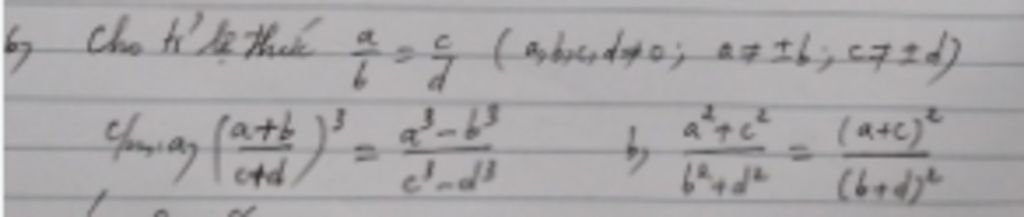 b, Cho tỉ lệ thức a/b = c/d ( a,b,c,d ≠ 0 ; a ≠ ±b ; c ≠ ±d )
c/m. a, ((a+b)/(c+d))³ = (a³ - b³)/(c³ - d³) b, (a² + c²)/(b² + d²) = (a+c)²/(b+d)²